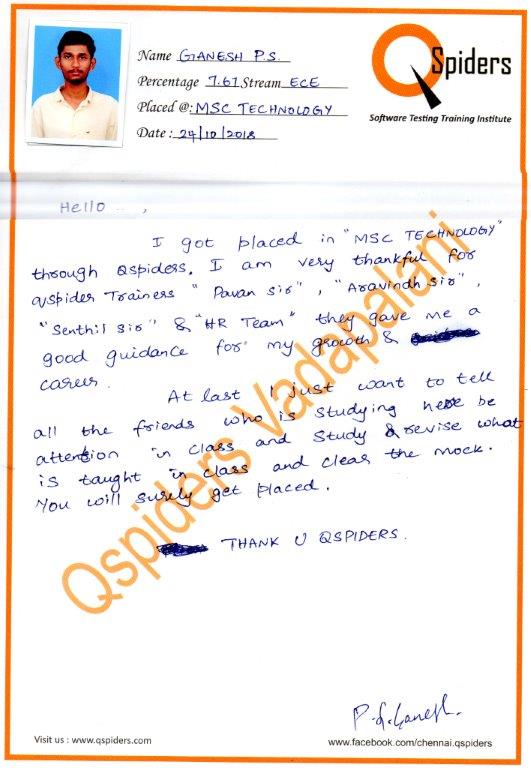 Name GANESH P.S.
Percentage 7.67 Stream ECE
Placed @: MSC TECHNOLOGY
Date : 24/10/2018
QSpiders
Software Testing Training Institute
Hello ...,
I got placed in "MSC TECHNOLOGY"
through Qspiders. I am very thankful for
qspider Trainers "Pavan Sir", "Aravindh Sir",
"Senthil Sir" & "HR Team" they gave me a
good guidance for my growth &
career.
At last I just want to tell
all the friends who is studying here be
attention in class and study & revise what
is taught in class and clear the mock.
You will surely get placed.
THANK U QSPIDERS.
Qspiders Vadapalani
P.S.Ganesh.
Visit us : www.qspiders.com
www.facebook.com/chennai.qspiders